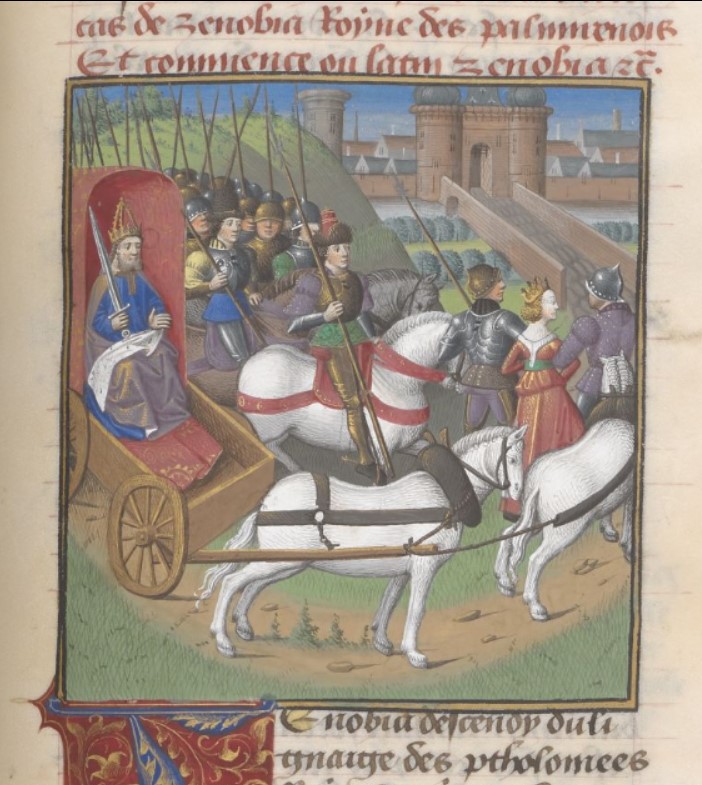 cas de zenobia Royne des palmurenois
Et commence ou latin zenobia rc̃.
Enobia descendy du li
gnaige des ptholomees